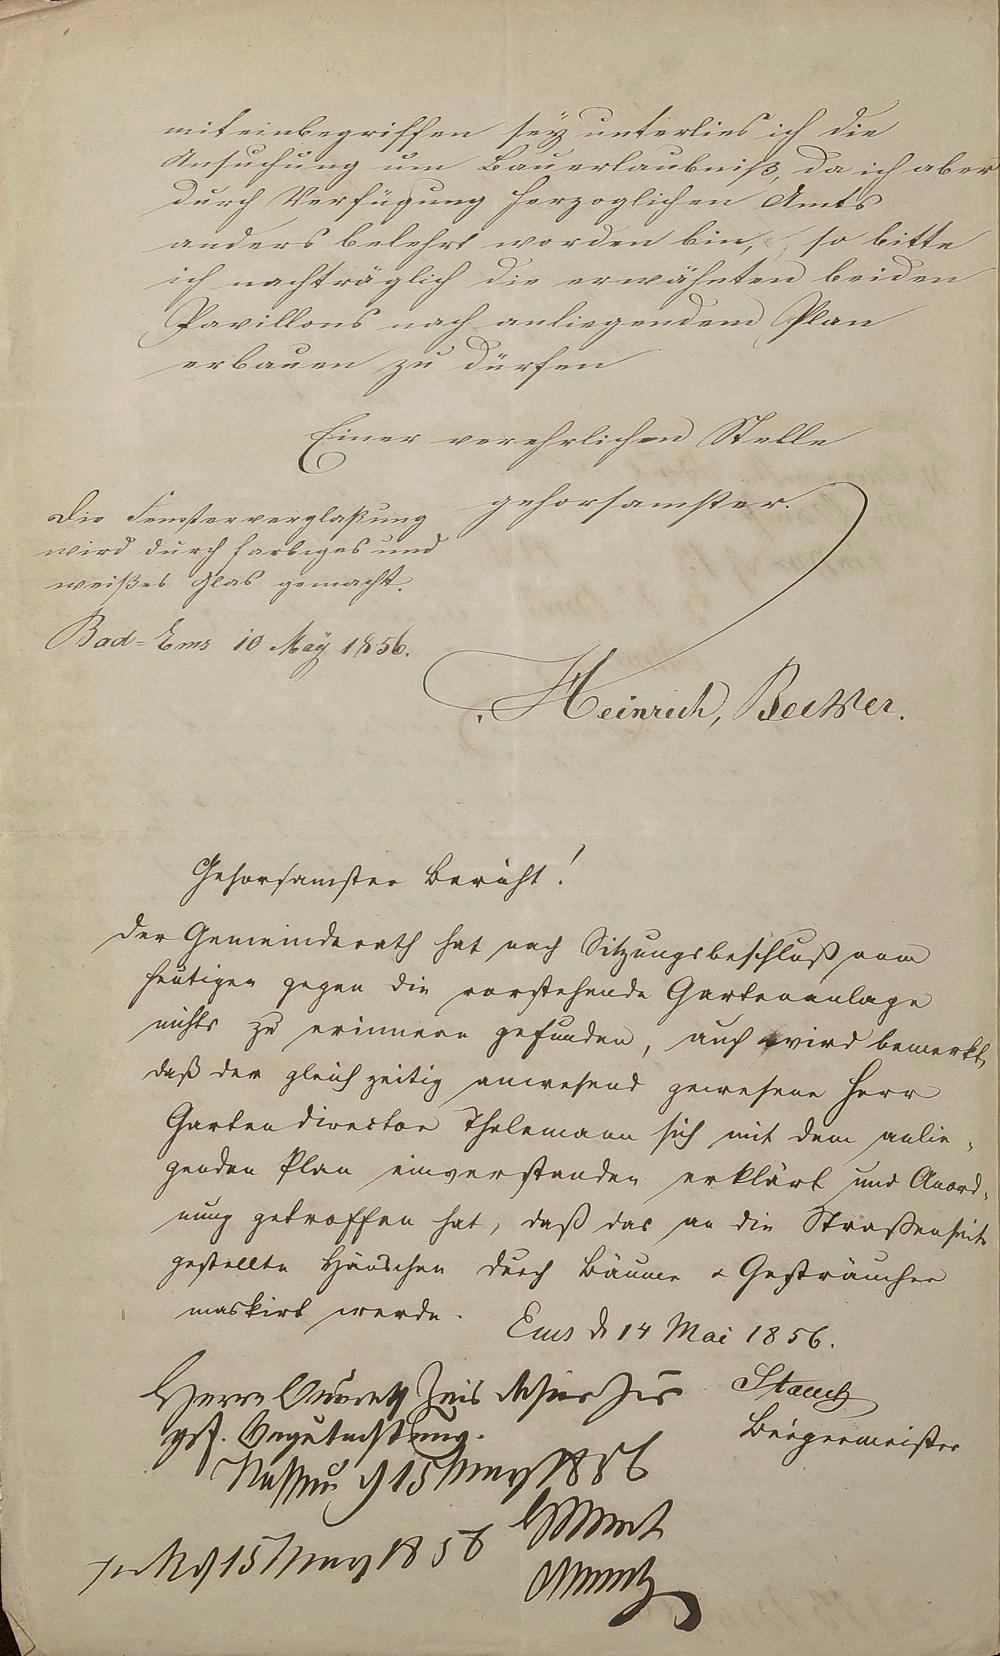 miteinbegriffen sey unterlies ich die
Ansuchung um Bauerlaubniß, da ich aber
durch Verfügung herzoglichen Amts
anders belehrt worden bin, so bitte
ich nachträglich die erwähnten beiden
Pavillons nach anliegendem Plan
erbauen zu dürfen
Einer verehrlichen Stelle
gehorsamster.
Die Fensterverglaßung
wird durch farbiges und
weißes Glas gemacht.
Bad-Ems 10 May 1856.
Heinrich,
Gehorsamster Bericht!
Der Gemeinderath hat nach Sitzungsbeschluß vom
heutigen gegen die vorstehende Gartenanlage
nichts zu erinnern gefunden, auch wird bemerkt,
daß der gleich zeitig anwesend gewesene Herr
Gartendirector Thelemann sich mit dem anlie-
genden Plan einverstanden erklärt und Anord-
nung getroffen hat, daß das an die Straßenseite
gestellte Häuschen durch Bäume & Gesträucher
maskirt werde.
Ems d 14 Mai 1856.
Bürgermeister
Herrn
gef. Begutachtung.
Nassau d 15 May 1856
15 May 1856